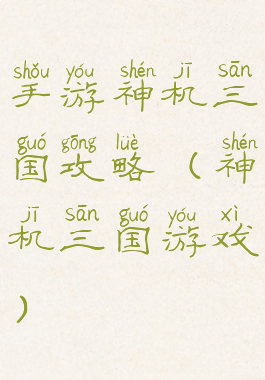 shǒu yóu shén jī sān
手游神机三
guó gōng lüè shén
国攻略（神
jī sān guó yóu xì
机三国游戏
）